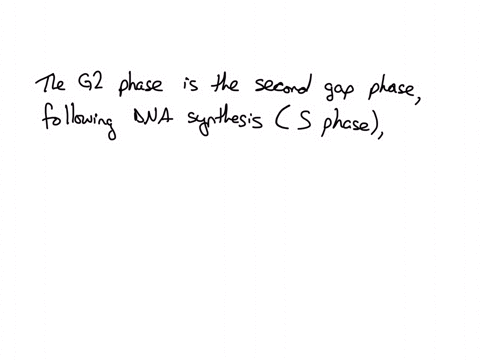 The G2 phase is the second gap phase,
following DNA synthesis (S phase),